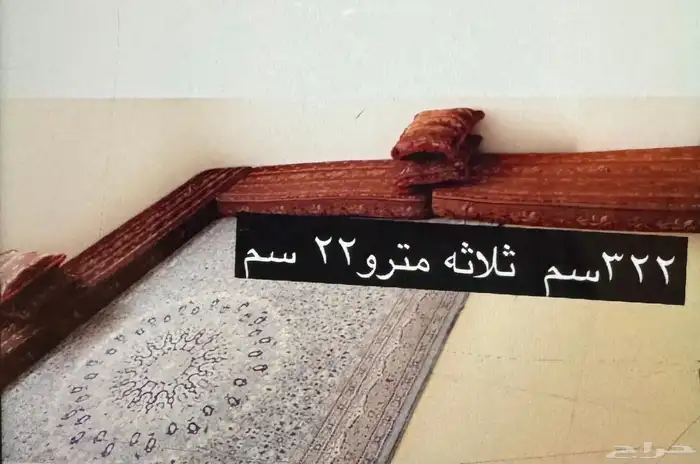 ٣٢٢سم ثلاثه مترو٢٢ سم
حراج